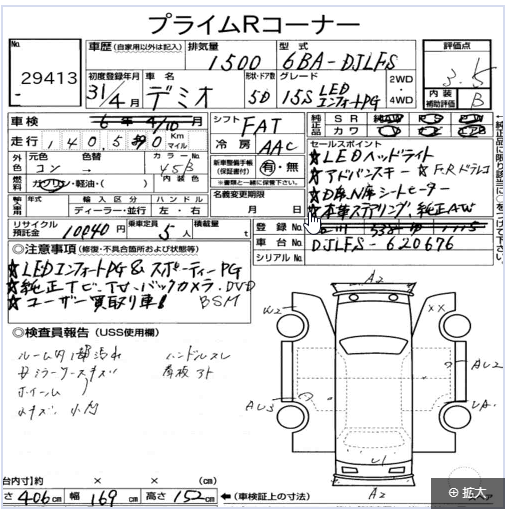 プライムRコーナー
No. 29413
車歴 (自家用以外は記入) 排気量 1500 型式 6BA-DJLFS 評価点 3.5
初度登録年月 31/4月 車名 デミオ 形状・ドア数 5D グレード 15S LED 2WD・4WD 内装補助評価 B
車検 6年4/10月 シフト FAT 純正品 SR AW PS PW
走行 140,5 0 Km マイル 冷房 AAC カワ
セールスポイント
★LEDヘッドライト
★アドバンスキー ★F.Rドラレコ
★D席N席シートヒーター
★本革ステアリング、純正AW
外色 元色 コン → 色替 カラーNo. 45B
燃料 ガソリン・軽油・( ) 内装色
新車整備手帳(保証書付) 有・無
※書類と一緒に保管下さい。
名義変更期限 月 日
輸入車用 年式 輸入区分 ディーラー・並行 ハンドル 左・右
リサイクル預託金 10040円 乗車定員 5人 積載量 t
登録No.
車台No. DJLFS-620676
シリアルNo.
◎注意事項(修復・不具合箇所および状態等)
★純正ナビ.TV.バックカメラ.DVD
★ユーザー買取り車! BSM
◎検査員報告 (USS使用欄)
ルーム内 汚れ ハンドルスレ
ホイール
小凹
A2
W2
XX
AU2
AU3
UA
U1
A2
台内寸) 約 × × (cm)
さ 406cm 幅 169cm 高さ 152cm ←(車検証上の寸法)
拡大